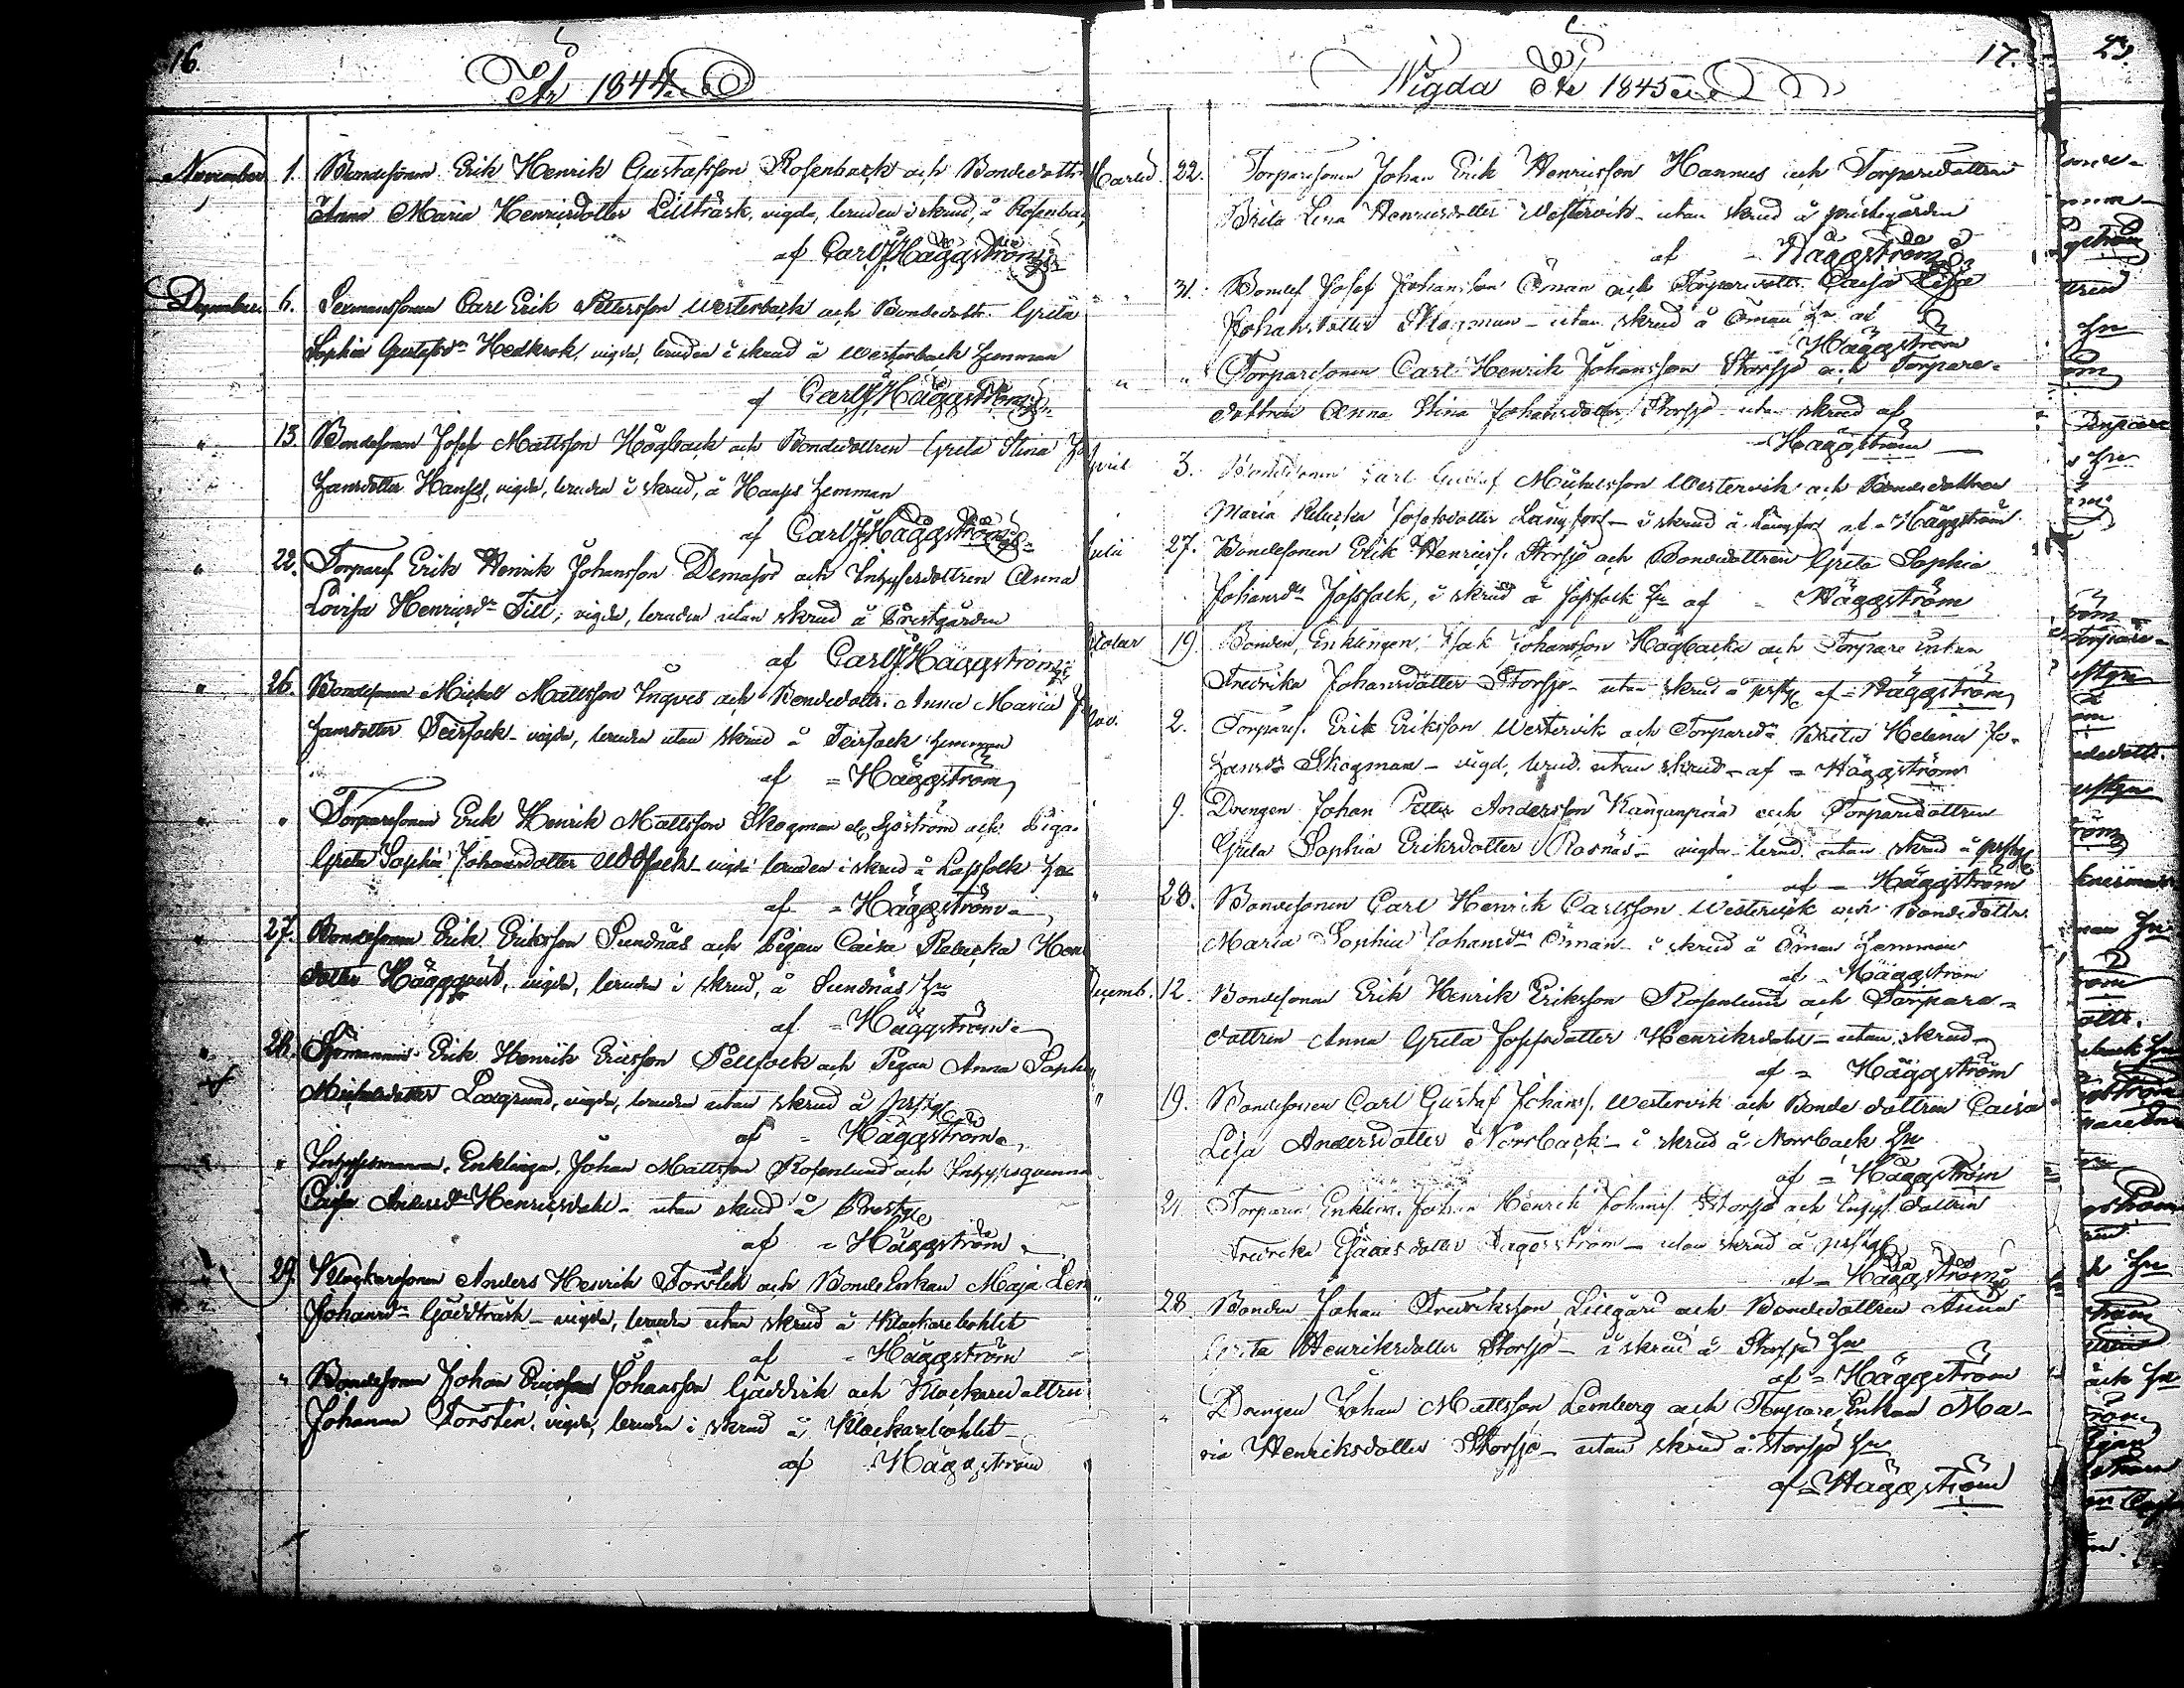 16.
År 1844
November 1. Bondesonen Erik Henrik Gustafsson Rosenback och Bondedottr
Anna Maria Henricsdotter Lillträsk, vigda, bruden i skrud, å Rosenba
af Carl J Häggström
December 6. Carl Erik Pettersson Westerback och Bondedottr Greta
Sophia Gustafsdr Hedkrok, vigda, bruden i skrud å Westerback hemman
af Carl J Häggström
" 13. Bondesonen Josef Mattsson Högback och Bondedottren Greta Stina
hansdotter Hanses, vigda, bruden i skrud, å Hanses hemman
af Carl J Häggström
" 22. Torpares. Erik Henrik Johansson och Inhysesdottren Anna
Lovisa Henricsdr Till, vigda, bruden utan skrud å Prestgården
af Carl J Häggström
" 26. Bondesonen Mickel Mattsson Ingves och Bondedottr. Anna Maria
hansdotter Teirfolk - vigda, bruden utan skrud å Teirfolk hemman
af = Häggström
" " Torparesonen Erik Henrik Mattsson Skogman Sjöström och Pigan
Greta Sophia Johansdotter vigda bruden i skrud å Lassfolk hn
af = Häggström
" 27. Bondesonen Erik Eriksson Sundnäs och Pigan Caisa Rebecka Hen
dotter Häggqvist, vigda, bruden i skrud, å Sundnäs hn
af = Häggström
" 28. Erik Henrik Ericsson Pellfolk och Pigan Anna Soph
Mickelsdotter Laxgrund, vigda, bruden utan skrud å prstg
af = Häggström
" " Inhysesmannen, Enklingen, Johan Mattsson Rosenlund och Inhysesqvinna
Caisa Andersdr Henricsdahl - utan skrud å Prestg
af = Häggström
" 29. Klockaresonen Anders Henrik Torstén och Bonde Enkan Maja Len
Johansdr Gäddträsk - vigda, bruden utan skrud å Klockarebohlet
af = Häggström
" Bondesonen Johan Johansson Gäddvik och Klockaredottren
Johanna Torstén, vigda, bruden i skrud å Klockarebohlet
af Häggström
Wigda År 1845
17.
Martii 22. Torparesonen Johan Erik Henricsson Hannus och Torparedottren
Brita Lena Henricsdotter Westervik - utan skrud å prästegården
af - Häggström
" 31. Bondes. Josef Johansson Öman och Torparedottr. Caisa Lisa
Johansdotter Skogman - utan skrud å Öman hn af
Häggström
" " Torparesonen Carl Henrik Johansson Storsjö och Torpare-
dottren Anna Stina Johansdotter Storsjö utan skrud af
- Häggström
April 3. Bondesonen Carl Gustaf Mickelsson Westervik och Bondedottren
Maria Rebecka Josefsdotter Långfors - i skrud å Långfors af = Häggström
Julii 27. Bondesonen Erik Henricss. Storsjö och Bondedottren Greta Sophia
Johansdr Jossfolk, i skrud å Jossfolk hn af = Häggström
October 19. Bonden, Enklingen, Isak Johansson Högbacka och Torpare Enkan
Fredrika Johansdotter Storsjö - utan skrud å prstg af = Häggström
Nov. 2. Torpares. Erik Eriksson Westervik och Torparedr Brita Helena Jo-
hansdr Skogman - vigd, brud. utan skrud - af = Häggström
9. Drengen Johan Petter Andersson och Torparedottren
Greta Sophia Eriksdotter Rosnäs - vigda brud. utan skrud å prstg
af = Häggström
" 28. Bondesonen Carl Henrik Carlsson Westervik och Bondedottr.
Maria Sophia Johansdr Öman - i skrud å Öman hemman
af = Häggström
Decemb. 12. Bondesonen Erik Henrik Eriksson Rosenlund och Torpare-
dottren Anna Greta Josefsdotter Henriksdahl - utan skrud -
af = Häggström
" 19. Bondesonen Carl Gustaf Johanss. Westervik och Bonde dottren Caisa
Lisa Andersdotter Norrback - i skrud å Norrback hn
af = Häggström
21. Torparen Enkling. Johan Henrik Johanss. Storsjö och Inhys. dottren
Fredrika - utan skrud å prstg
af = Häggström
" 28. Bonden Johan Fredriksson Lillgård och Bondedottren Anna
Greta Henriksdotter Storsjö - i skrud å Storsjö hn
af = Häggström
" Drengen Johan Mattsson Lemberg och Torpare Enkan Ma-
ria Henriksdotter Storsjö - utan skrud å Storsjö hn
af = Häggström